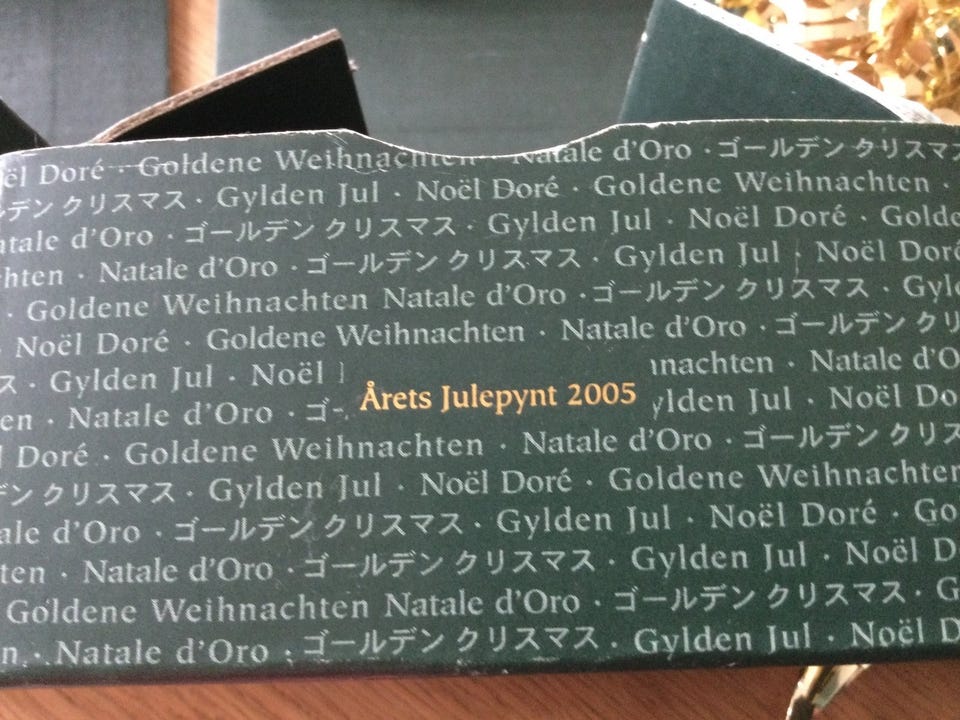 ël Doré · Goldene Weihnachten · Natale d'Oro · ゴールデン クリスマス
デン クリスマス · Gylden Jul · Noël Doré · Goldene Weihnachten ·
tale d'Oro · ゴールデン クリスマス · Gylden Jul · Noël Doré · Golde
hten · Natale d'Oro · ゴールデン クリスマス · Gylden Jul · Noël Doré
· Goldene Weihnachten Natale d'Oro · ゴールデン クリスマス · Gyl
Noël Doré · Goldene Weihnachten · Natale d'Oro · ゴールデン クリ
ス · Gylden Jul · Noël nachten · Natale d'O
en · Natale d'Oro · ゴ Årets Julepynt 2005 ylden Jul · Noël Do
l Doré · Goldene Weihnachten · Natale d'Oro · ゴールデン クリス
デン クリスマス · Gylden Jul · Noël Doré · Goldene Weihnachten
ale d'Oro · ゴールデン クリスマス · Gylden Jul · Noël Doré · Go
ten · Natale d'Oro · ゴールデン クリスマス · Gylden Jul · Noël D
Goldene Weihnachten Natale d'Oro · ゴールデン クリスマス · G
n · Natale d'Oro · ゴールデン クリスマス · Gylden Jul · Noël D